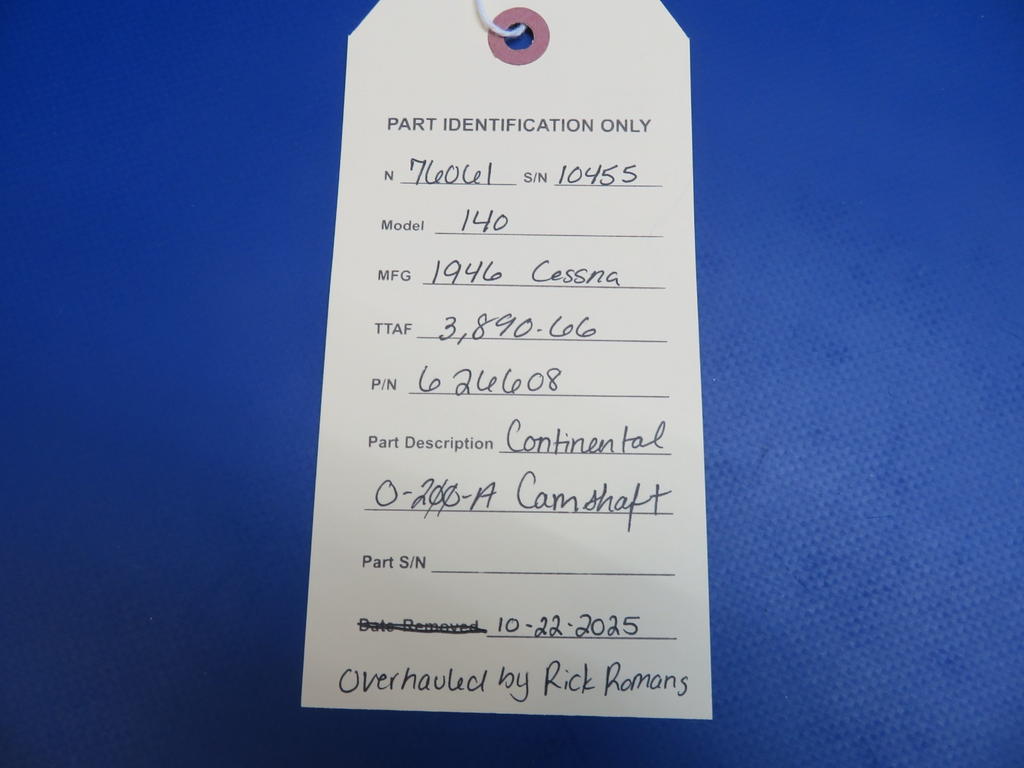 PART IDENTIFICATION ONLY
N 76061 S/N 10455
Model 140
MFG 1946 Cessna
TTAF 3,890.66
P/N 626608
Part Description Continental
O-200-A Camshaft
Part S/N
Date Removed 10-22-2025
Overhauled by Rick Romans